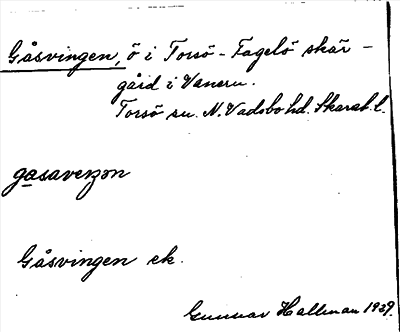 Gåsvingen, ö i Torsö - Fagelö skär -
gård i Vänern.
Torsö sn. N. Vadsbo hd. Skarab. l.
gasaveŋən
Gåsvingen ek.
Gunnar Hallman 1939.